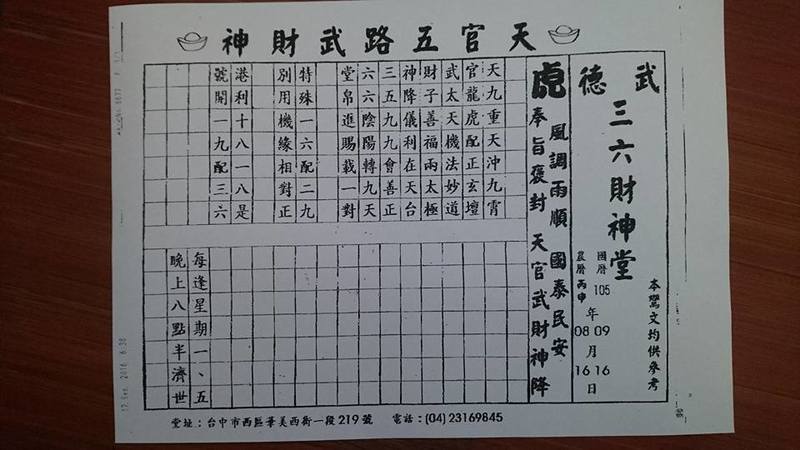 天官五路武財神
武德
三六財神堂
本鸞文均供參考
國曆 105 年 09 月 16 日
農曆 丙申 年 08 月 16 日
風調雨順 國泰民安
虎 奉旨褒封 天官武財神降
天九重天沖九霄
官龍虎配正玄壇
武太天機法妙道
財子善福兩太極
神降儀利在天台
三五九九會善正
六六陰陽轉九天
堂帛進賜栽一對
特殊一六配二九
別用機緣相對正
港利十八一八是
號開一九配三六
每逢星期一、五
晚上八點半濟世
堂址:台中市西區華美西街一段219號 電話:(04)23169845